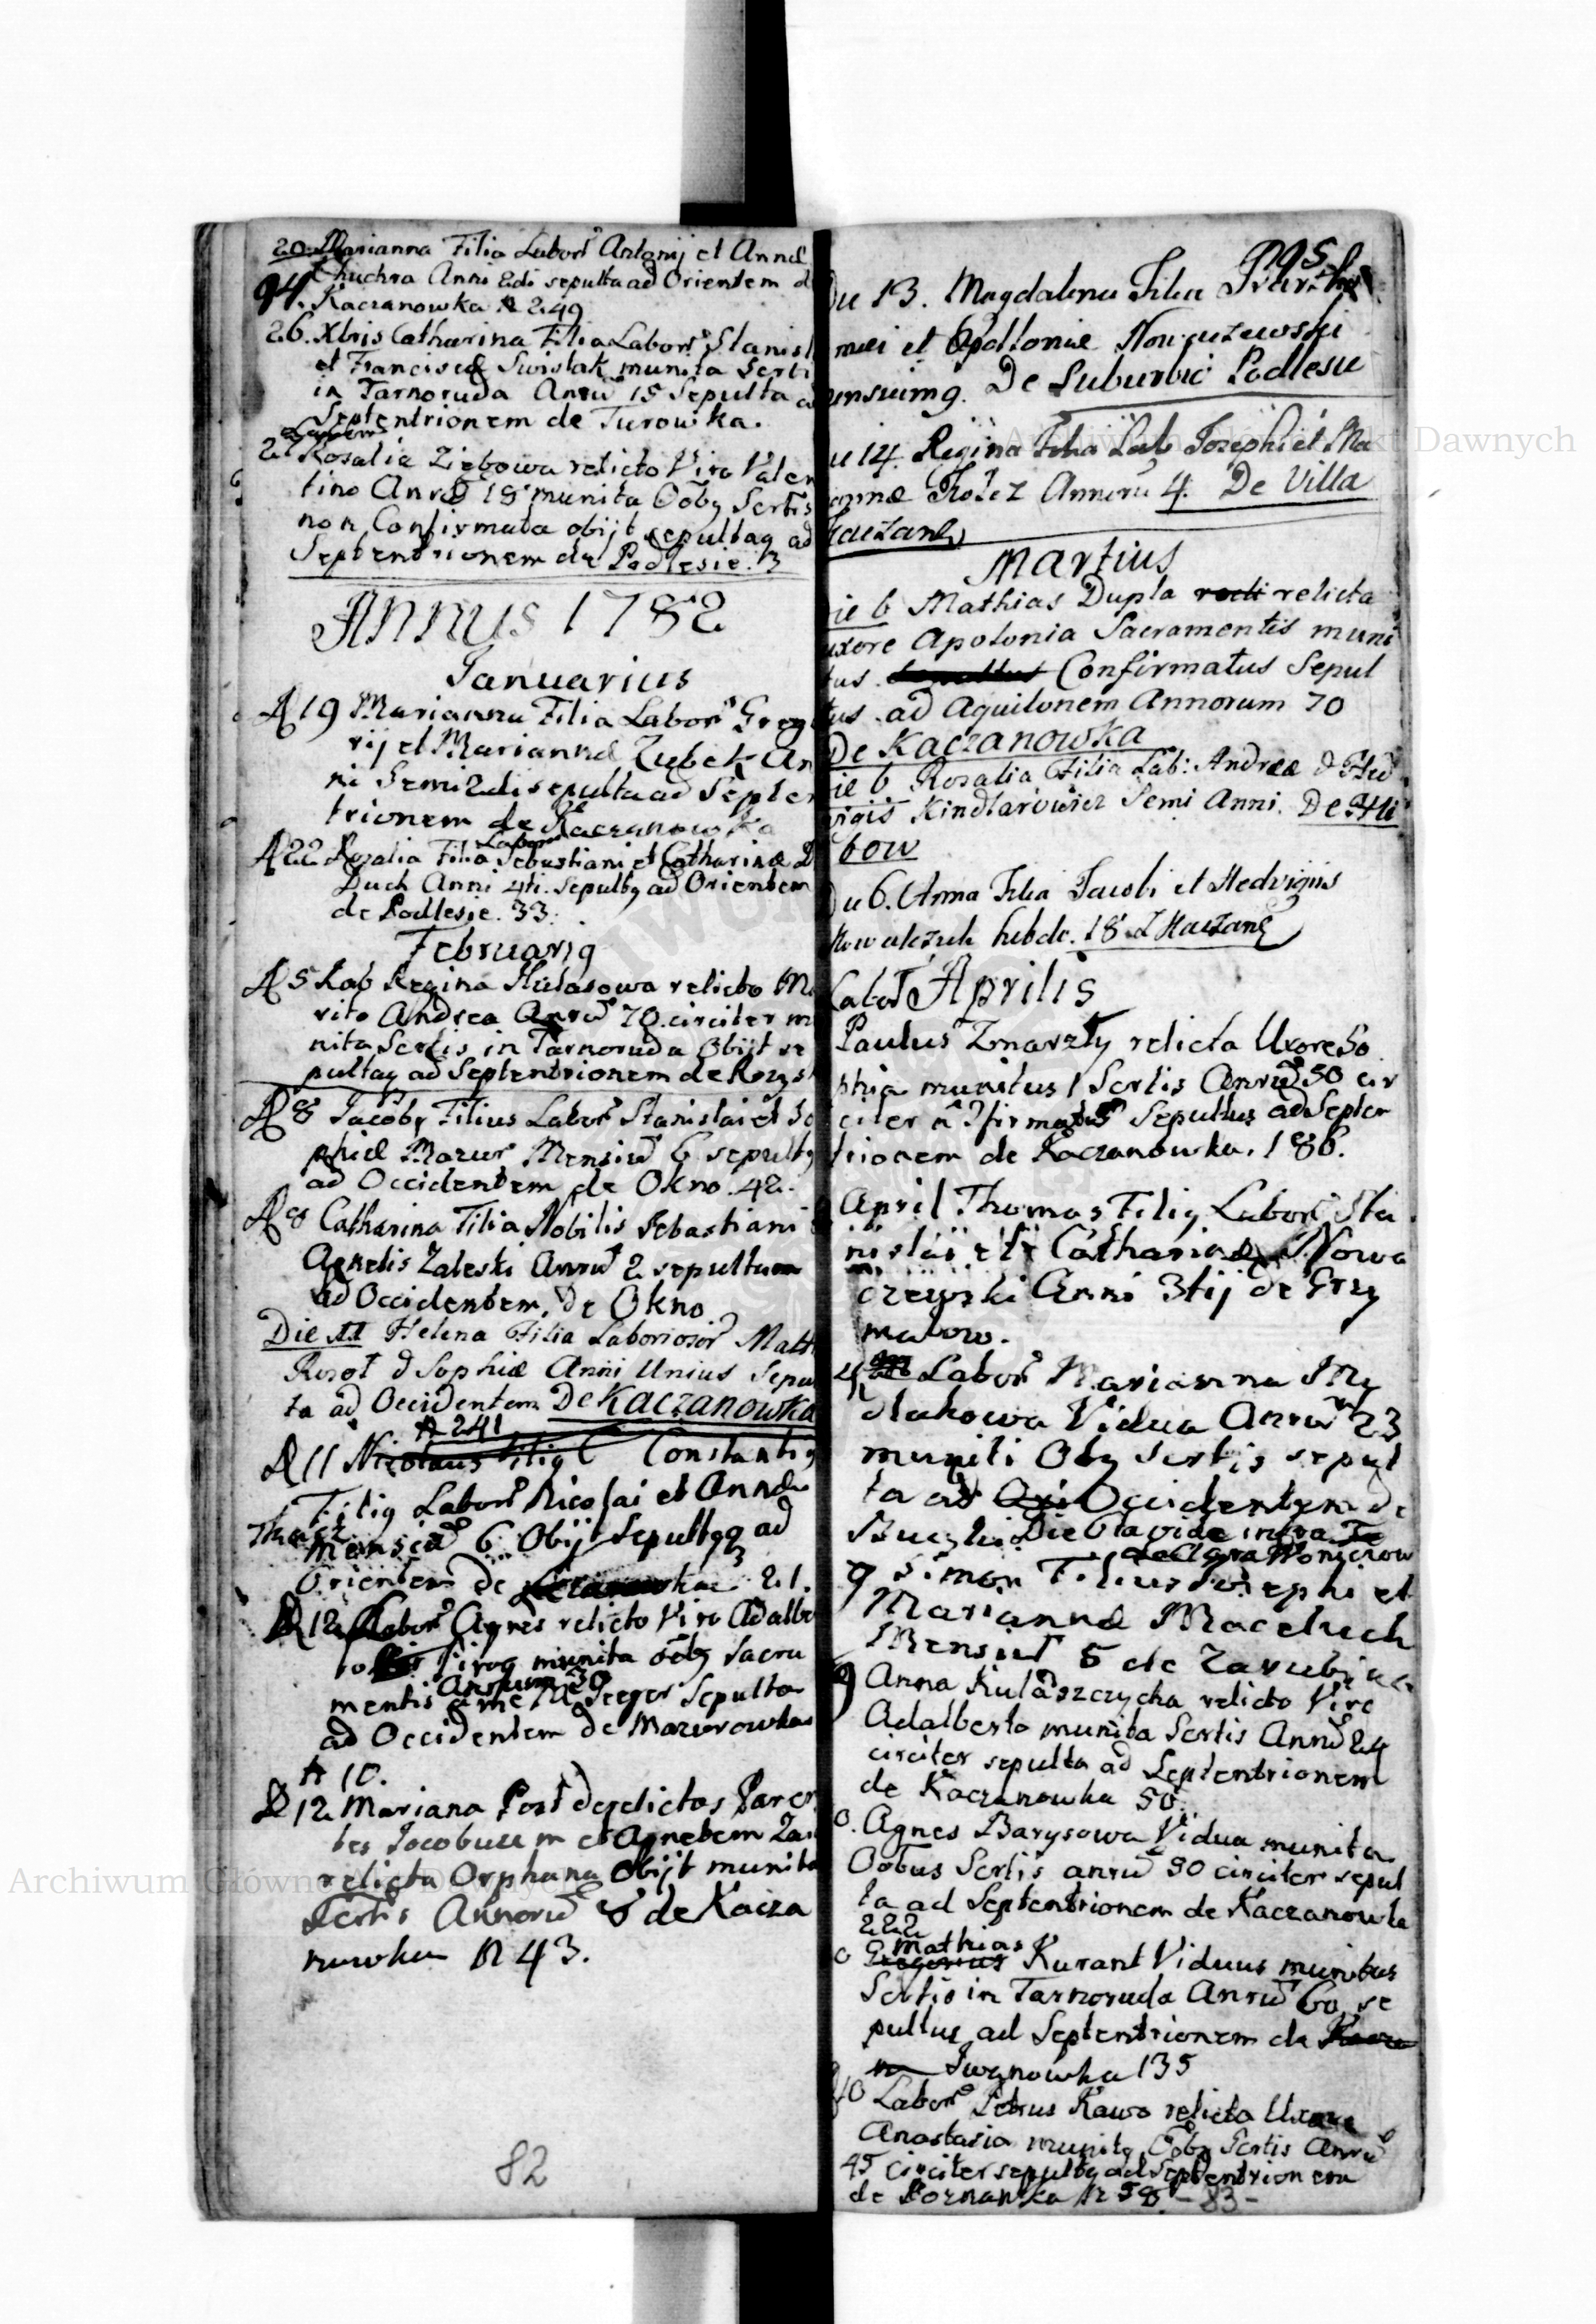 20. Marianna Filia Labor Antonij et Annæ
Chuchra Anni 2di sepulta ad Orientem d
94. Kaczanowka N 249
26. Xbris Catharina Filia Labor Stanisl
et Franciscæ Swistak munita Scrti
in Tarnoruda Anrū 15 Sepulta a
Septentrionem de Turowka.
Rosalia Ziębowa relicto Viro Valen
tino Anrū 18 munita Ōōbg Scrtis
non Confirmata obijt sepultaq ad
Septentrionem de Podlesie. 3
Annus 1782
Januarius
D 19 Marianna Filia Labor Grego
rij et Mariannæ Zubek An
ni Semi 2di sepulta ad Septen
trionem de Kaczanowka
Labor
D 22 Rozalia Filia Sebastiani et Catharinæ D
Duch Anni 4ti. Sepultg ad Orientem
de Podlesie. 33.
Februarig
D 5 Lab Regina Hulasowa relicto Ma
rito Andrea Anrū 70. circiter mu
nita Scrtis in Tarnoruda Obijt se
pultaq ad Septentrionem de Rozys
D 8 Jacobg Filius Labor Stanislai et So
phiæ Mazur Mensiū 6 sepultg
ad Occidentem de Okno. 42.
D 8 Catharina Filia Nobilis Sebastiani
Agnetis Zaleski Anrū 2 sepultum
ad Occidentem, de Okno
Die 11 Helena Filia Laboriosor Math
Rozot & Sophiæ Anni Unius Sepu
ta ad Occidentem De Kaczanowka
N 241
D 11 Nicolaus Filig Constantig
Filig Labor Nicolai et Annæ
Tkacz Mensiū 6 Obijt Sepultgq ad
Orientem de 21.
D 12 Labor Agnes relicto Viro Adalbe
to Pirog munita ōōbg Sacra
Annorum 30
mentis a me Seeger Sepulta
ad Occidentem de Mazurowka
N 10.
D 12 Mariana Post derelictos Paren
tes Jacobum et Agnetem Za
relicta Orphana Obijt munita
Scrtis Annorū 8 de Kacza
nowka N 43.
82
Die 13. Magdalena Filia
mei et Apolloniæ Nowuszewski
De Suburbio Podlesie
14. Regina Filia Lab Josephi et Ma
iannæ Kolez Annorū 4. De Villa
Kaczan
Martius
ie 6 Mathias Dupla relicta
uxore Apolonia Sacramentis muni
tus. Sepultus Confirmatus Sepul
tus ad Aquilonem Annorum 70
De Kaczanowka
ie 6 Rozalia Filia Lab: Andreæ & Hed
vigis Kindlarowicz Semi Anni. De Hli
bow
Die 6. Anna Filia Jacobi et Hedvigis
Kowalczuk hebdo. 18. Z Kaczan
Labor Aprilis
Paulus Zmarzly relicta Uxore So
phia munitus Scrtis Anrū 50 cir
citer Sepultus ad Septen
trionem de Kaczanowka. 186.
April Thomas Filig Labor Sta
nislai et Catharinæ Nowa
czewski Anni 3tij de Grzy
malow.
4 Labor Marianna My
dlakowa Vidua Anrū 23
muniti Obg Scrtis sepul
ta ad Occidentem de
Buczki Die 6ta vide infra
9 Simon Filius Josephi et
Mariannæ Maceluch
Mensiū 5 de Zarubince
9 Anna Kulaszczycha relicto Viro
Adalberto munita Scrtis Annū 24
circiter sepulta ad Septentrionem
de Kaczanowka 50.
0. Agnes Barysowa Vidua munita
Ōōbus Scrtis anrū 90 circiter sepul
ta ad Septentrionem de Kaczanowka
222
Mathias
0 Gregorius Kurant Viduus munitus
Scrtis in Tarnoruda Anrū 60 se
pultus ad Septentrionem de Kacza
no Iwanowka 135
10 Labor Petrus Kawa relicta Uxore
Anastasia munitg Ōōbg Scrtis Anrū
45 circiter sepultg ad Septentrionem
de Poznanka N 58
- 83 -
Archiwum Główne Akt Dawnych